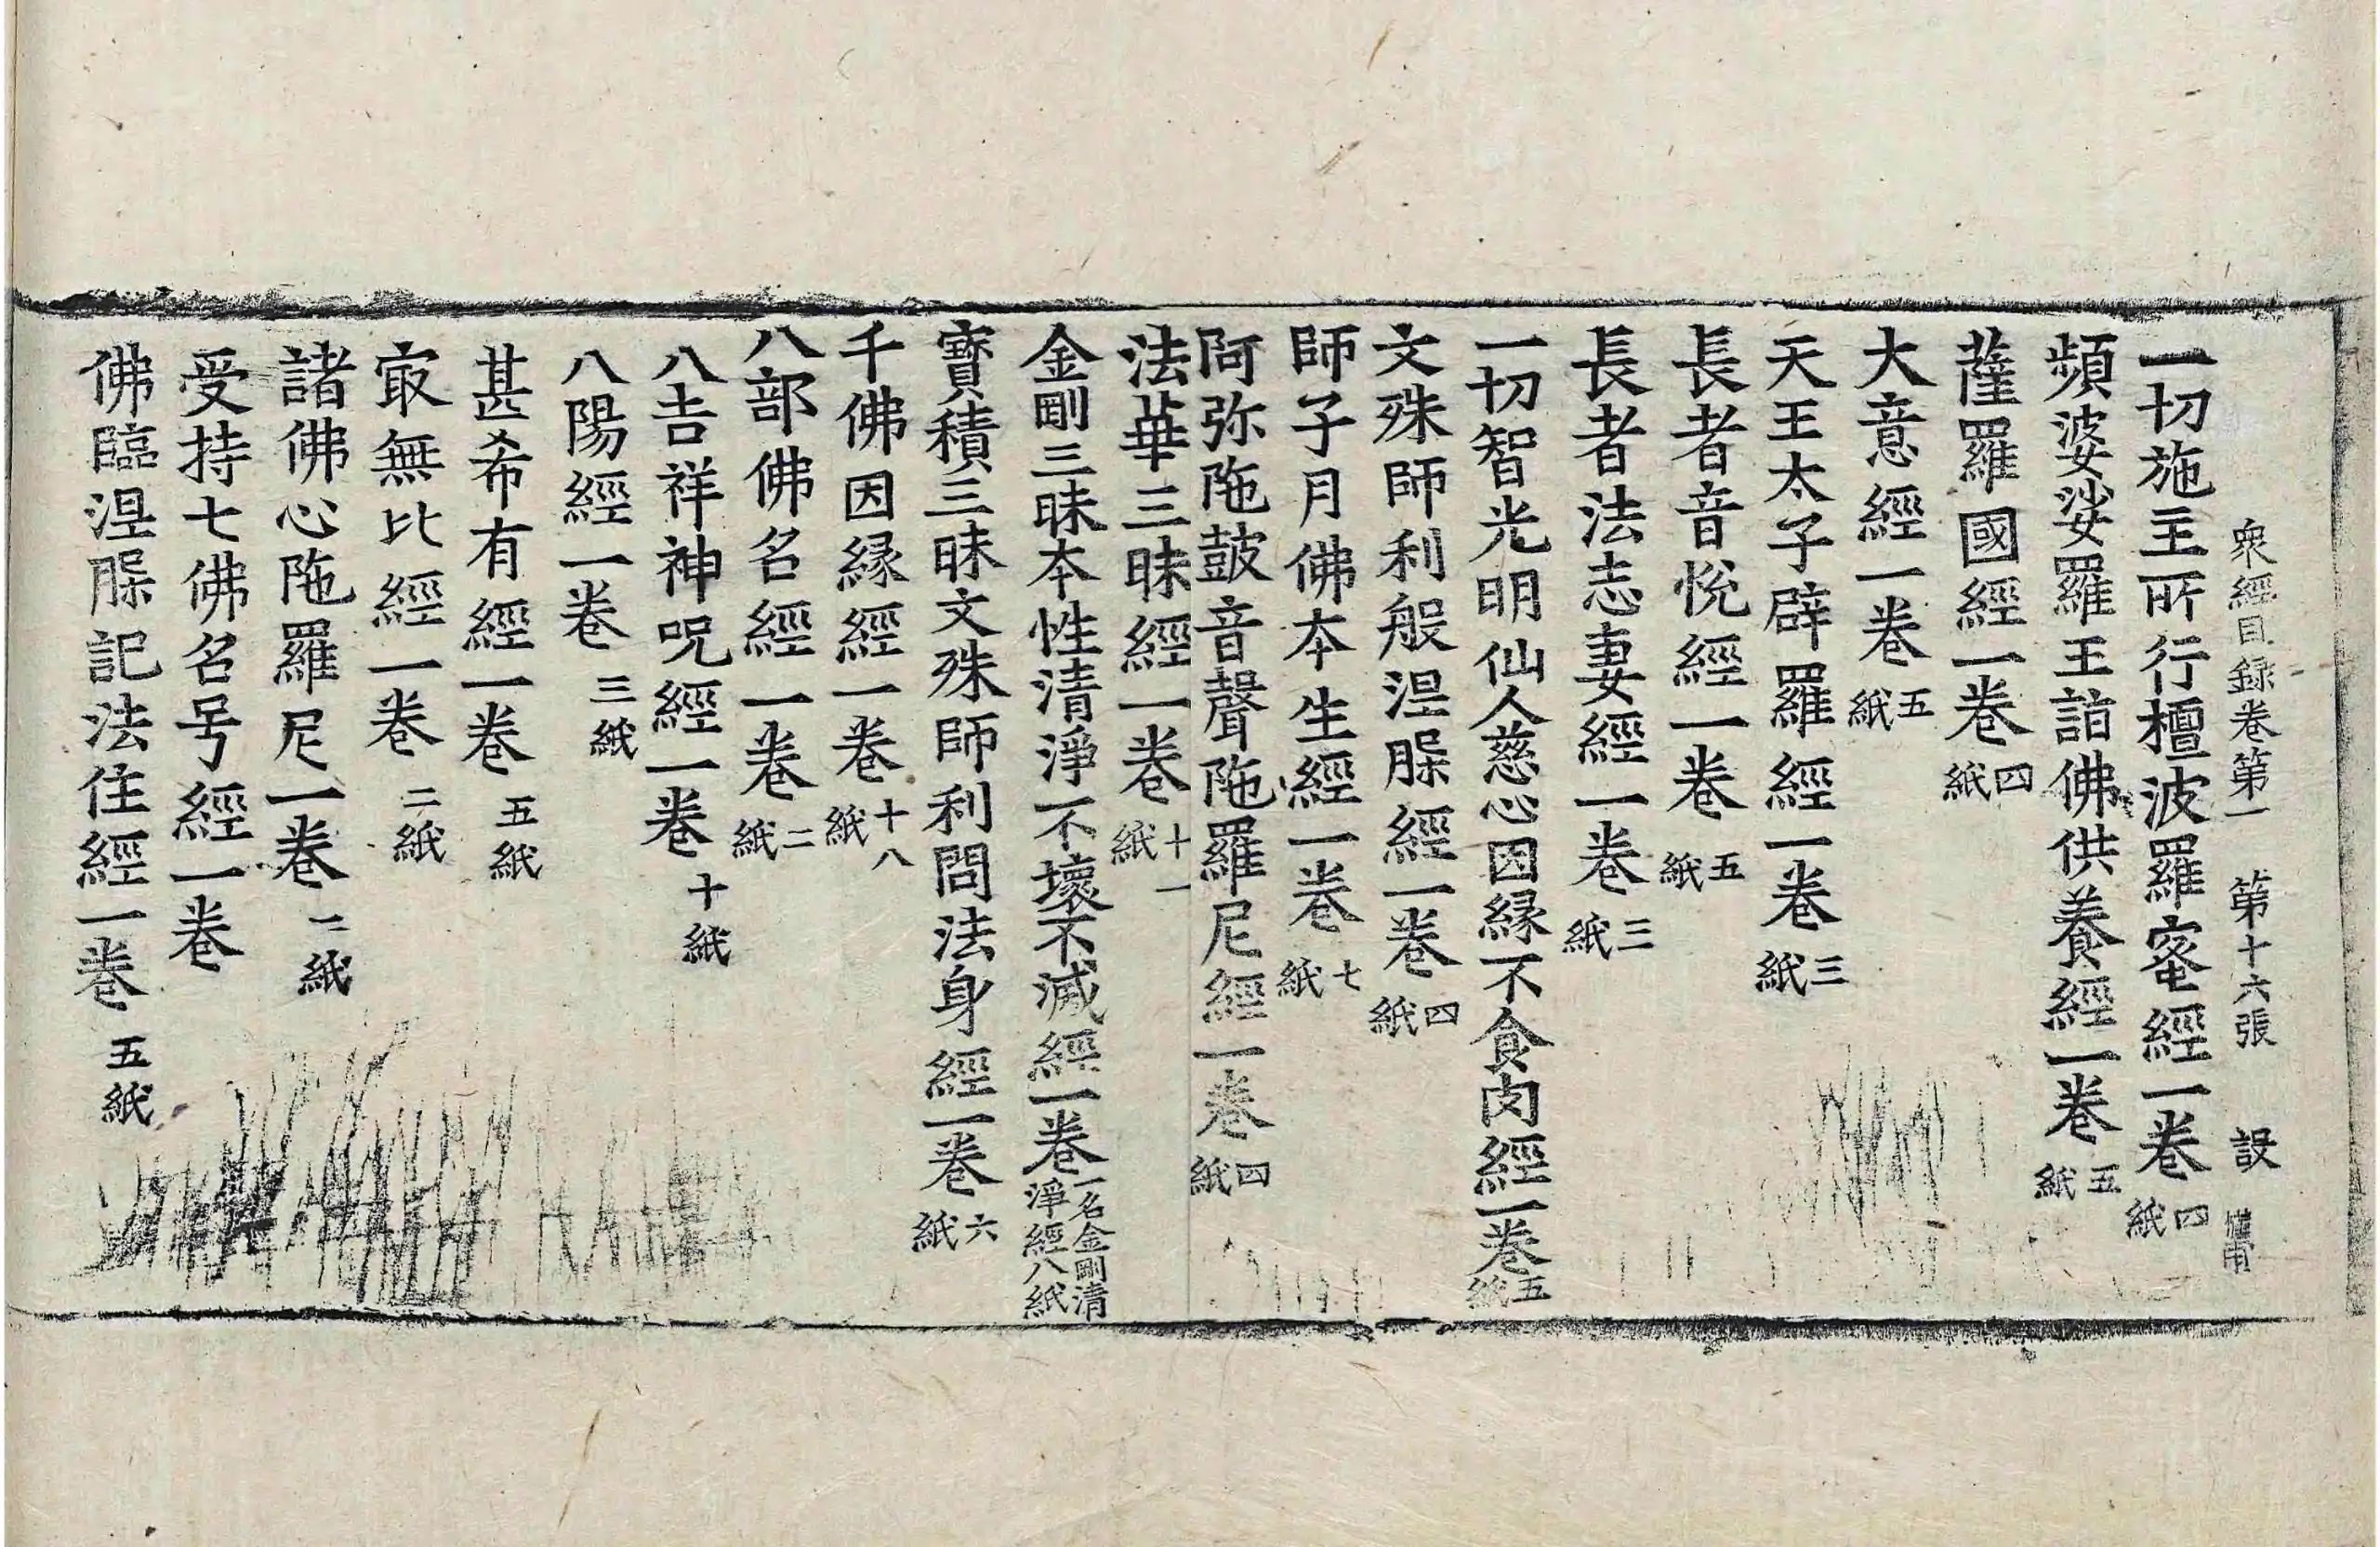 衆經目録卷第一　第十六張　設
一切施主所行檀波羅蜜經一卷四紙
頻婆娑羅王詣佛供養經一卷五紙
薩羅國經一卷四紙
大意經一卷五紙
天王太子辟羅經一卷三紙
長者音悅經一卷五紙
長者法志妻經一卷三紙
一切智光明仙人慈心因縁不食肉經一卷五紙
文殊師利般涅槃經一卷四紙
師子月佛本生經一卷七紙
阿弥陁鼓音聲陁羅尼經一卷四紙
法華三昧經一卷十一紙
金剛三昧本性清淨不壞不滅經一卷一名金剛清淨經八紙
寶積三昧文殊師利問法身經一卷六紙
千佛因縁經一卷十八紙
八部佛名經一卷二紙
八吉祥神呪經一卷十紙
八陽經一卷三紙
甚希有經一卷五紙
㝡無比經一卷二紙
諸佛心陁羅尼一卷二紙
受持七佛名号經一卷
佛臨涅槃記法住經一卷五紙